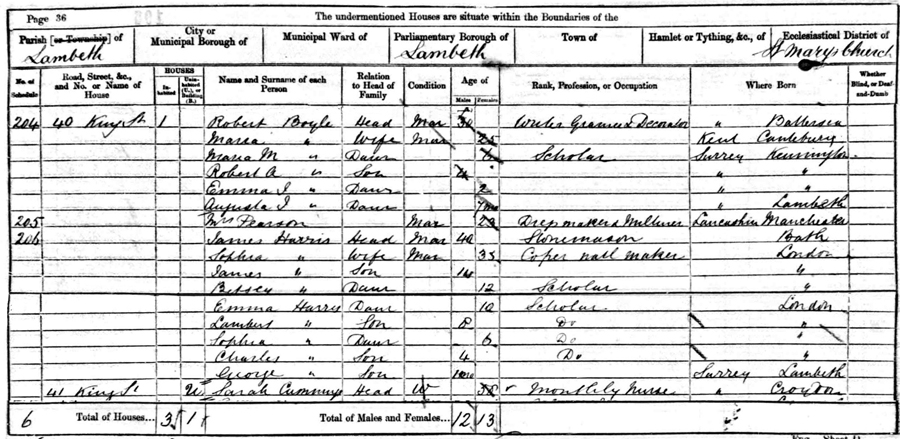 Page 36 The undermentioned Houses are situate within the Boundaries of the
Parish [or Township] of City or Municipal Borough of Municipal Ward of Parliamentary Borough of Town of Hamlet or Tything, &c., of Ecclesiastical District of
Lambeth Lambeth St Mary's Church
No. of Schedule Road, Street, &c., and No. or Name of House HOUSES Inhabited Uninhabited (U.), or Building (B.) Name and Surname of each Person Relation to Head of Family Condition Age of Males Females Rank, Profession, or Occupation Where Born Whether Blind, or Deaf-and-Dumb
204 40 King St 1 Robert Boyle Head Mar 30 Writer Grainer & Decorator " Battersea
Maria " Wife Mar 25 Kent Canterbury
Maria M " Daur 6 Scholar Surrey Kennington
Robert A " Son 4 " "
Emma J " Daur 2 " "
Augusta J " Daur Lambeth
205 Mrs Pearson Mar 23 Dressmaker & Milliner Lancashire Manchester
206 James Harris Head Mar 40 Stonemason Bath
Sophia " Wife Mar 35 Coper nail maker London
James " Son 14 "
Betsey " Daur 12 Scholar "
Emma Harris Daur 10 Scholar London
Lambert " Son 8 Do "
Sophia " Daur 6 Do "
Charles " Son 4 Do "
George " Son Surrey Lambeth
41 King St U Sarah Cummings Head W 38 Monthly Nurse " Croydon
6 Total of Houses... 3 1 Total of Males and Females... 12 13